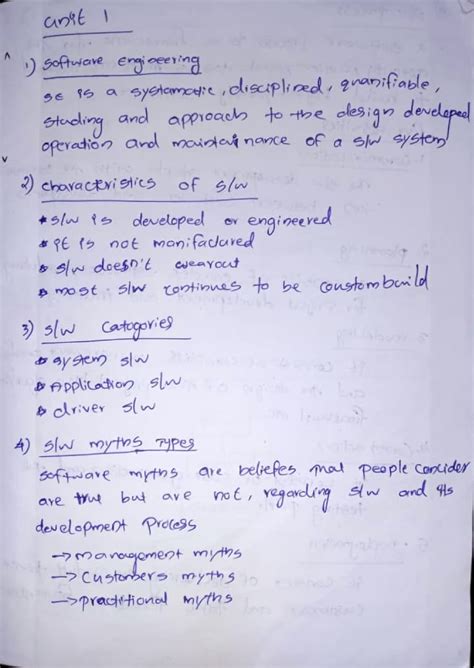 unit 1
1) software engineering
SE is a systamatic, disciplined, quanifiable,
studing and approach to the design developed
operation and maintainance of a s/w system
2) characteristics of s/w
* s/w is developed or engineered
* it is not manifactured
* s/w doesn't wearout
* most s/w continues to be coustombuild
3) s/w Catogories
* system s/w
* Application s/w
* driver s/w
4) s/w myths Types
software myths are beliefes that people concider
are true but are not, regarding s/w and its
development Process
→ management myths
→ Customers myths
→ practitional myths